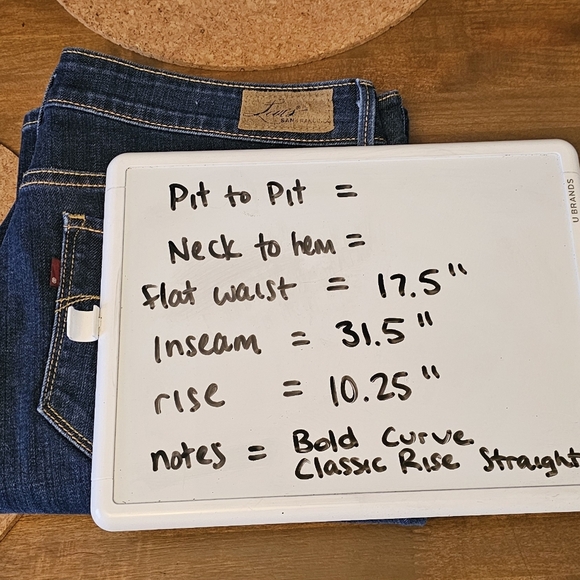 Levi's
SAN FRANCISCO
U BRANDS
Pit to Pit =
Neck to hem =
flat waist = 17.5"
Inseam = 31.5"
rise = 10.25"
notes = Bold Curve
Classic Rise Straight